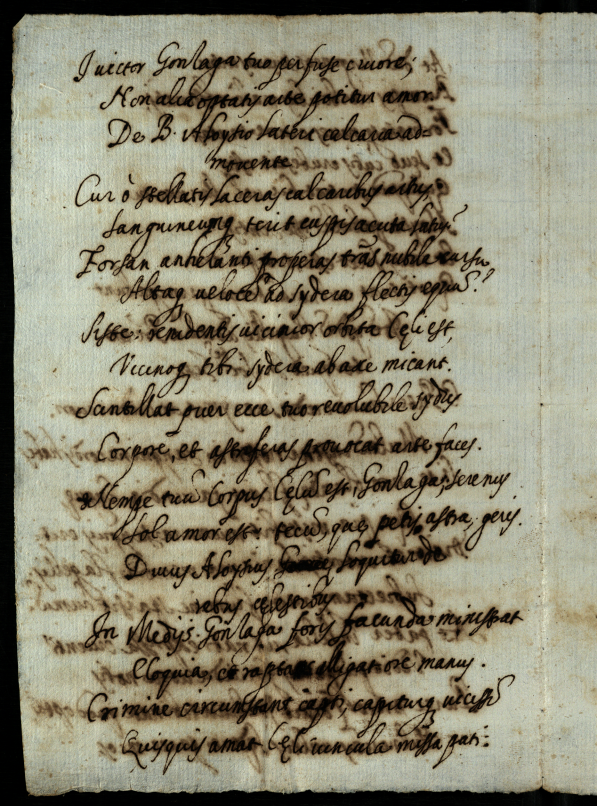 Gonzaga tuo perfuse cruore;
Non alia optatus arte potitur amor.
De B. Aloysio lateri calcaria ad=
movente
Cur ò stellatis laceras calcaribus artus
Sanguineumq terit cuspis acuta latus?
Forsan anhelanti properas trās nubila cursu
Altaq velocē ad sydera flectis equū?
Siste: renidentis vicinior orbita Cęli est,
Vicinoq tibi sydera ab axe micant.
Scintillat puer ecce tuo revolubile sydus
Corpore, et astriferas provocat arte faces.
Nempe tuū Corpus Cęlū est, Gonzaga; serenus
Sol amor est: tecū, quę petis, astra geris.
Divus Aloysius loquitur de
rebus cęlestibus
In Medijs Gonzaga foris facunda ministrat
Eloquia, et manus.
Crimine circumstant capti, capiturq vicissī
Quisquis amat Cęli vincula missa pati: